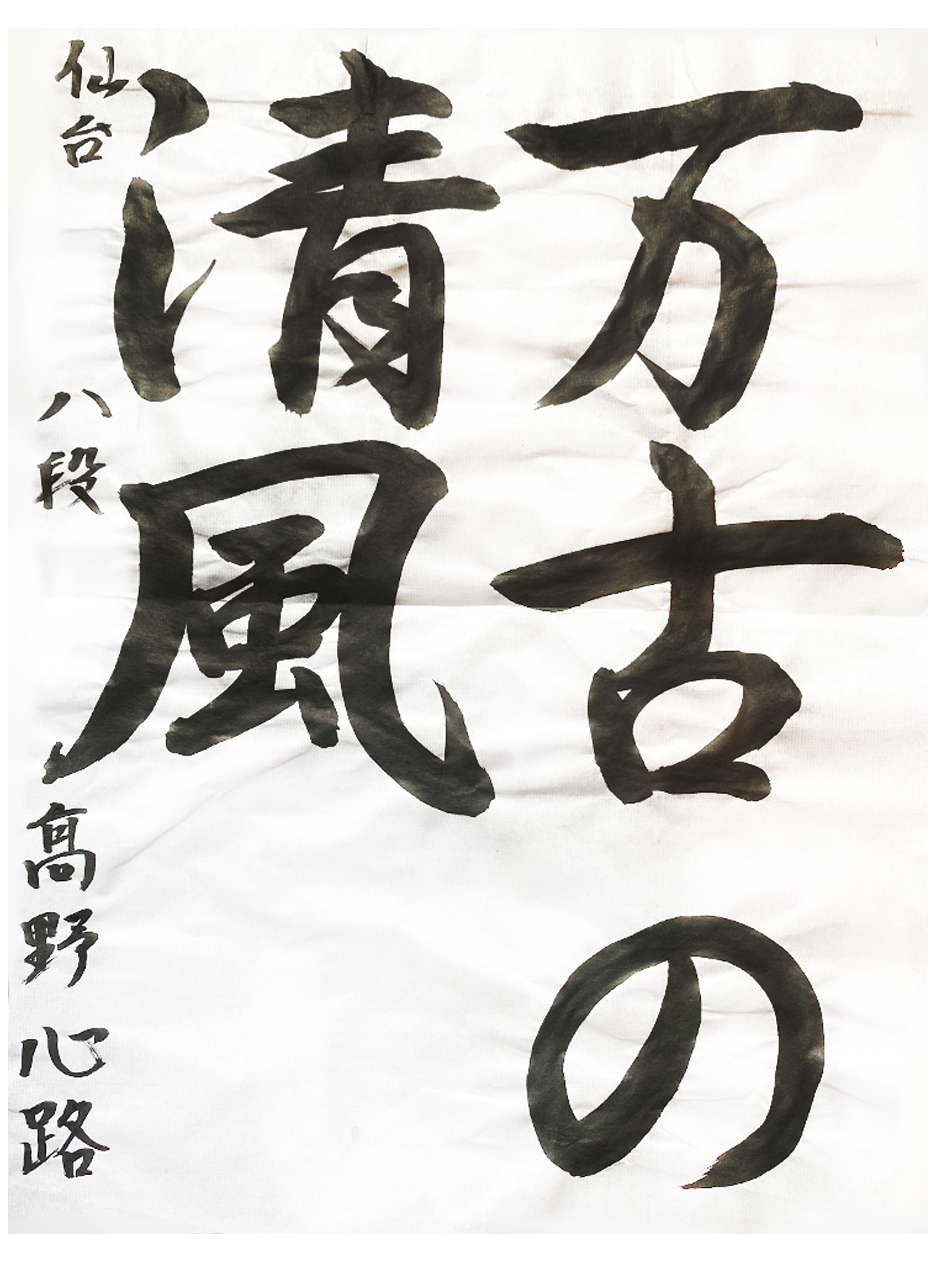 万古の
清風
仙台 八段 高野心路